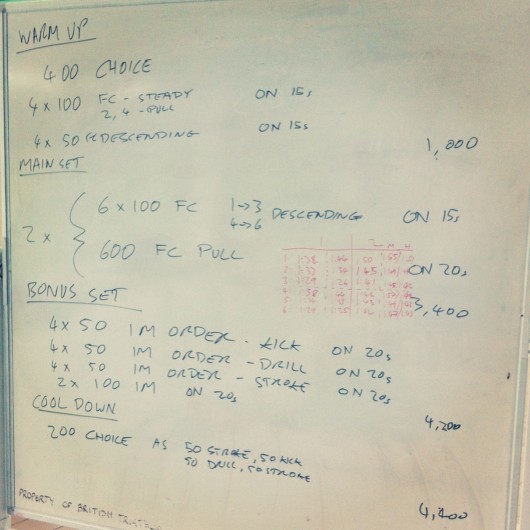 WARM UP
400 CHOICE
4 x 100 FC - STEADY ON 15s
2, 4 - PULL
4 x 50 FC DESCENDING ON 15s
1,000
MAIN SET
2 x
6 x 100 FC 1→3 DESCENDING ON 15s
4→6
600 FC PULL ON 20s
3,400
BONUS SET
4 x 50 IM ORDER - KICK ON 20s
4 x 50 IM ORDER - DRILL ON 20s
4 x 50 IM ORDER - STROKE ON 20s
2 x 100 IM ON 20s
COOL DOWN
4,200
200 CHOICE AS 50 STROKE, 50 KICK
50 DRILL, 50 STROKE
PROPERTY OF BRITISH
4,400